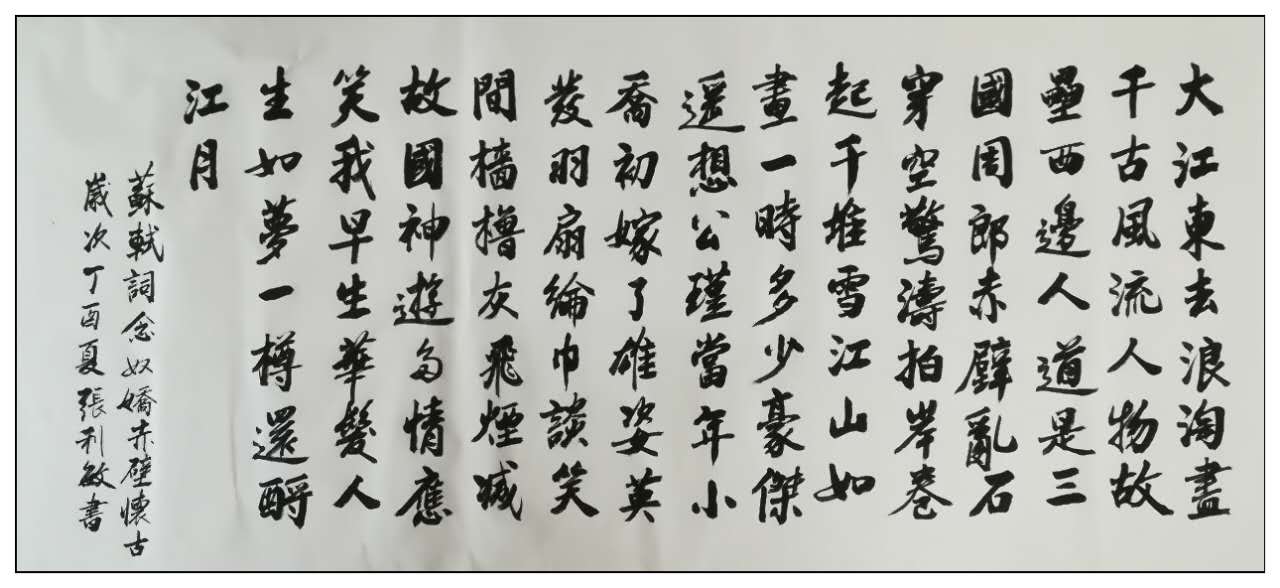 大江東去浪淘盡
千古風流人物故
壘西邊人道是三
國周郎赤壁亂石
穿空驚濤拍岸卷
起千堆雪江山如
畫一時多少豪傑
遥想公瑾當年小
喬初嫁了雄姿英
發羽扇綸巾談笑
間檣櫓灰飛煙滅
故國神遊多情應
笑我早生華髮人
生如夢一樽還酹
江月
蘇軾詞念奴嬌赤壁懷古
歲次丁酉夏張利敏書